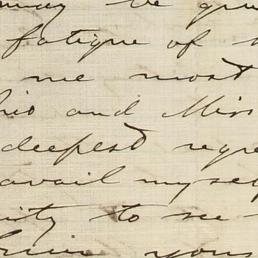 may be gru
fatigue of
me most
his and Miss
deepest regre
avail myself
nity to see
from yours